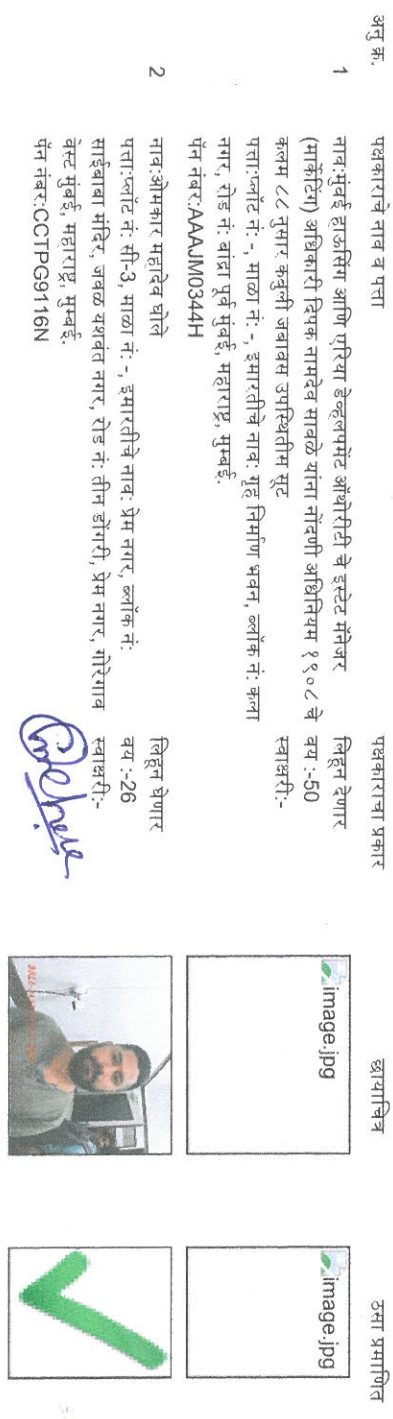 अनु क्र. पक्षकाराचे नाव व पत्ता पक्षकाराचा प्रकार छायाचित्र ठसा प्रमाणित
1 नाव:मुंबई हाऊसिंग आणि एरिया डेव्हलपमेंट ऑथोरीटी चे इस्टेट मॅनेजर लिहून देणार
(मार्केटिंग) अधिकारी दिपक नामदेव सावळे यांना नोंदणी अधिनियम १९०८ चे वय :-50
कलम ८८ नुसार कबुली जबाबस उपस्थितीस सूट स्वाक्षरी:-
पत्ता:प्लॉट नं: -, माळा नं: -, इमारतीचे नाव: गृह निर्माण भवन, ब्लॉक नं: कला
नगर, रोड नं: बांद्रा पूर्व मुंबई, महाराष्ट्र, मुम्बई.
पॅन नंबर:AAAJM0344H
image.jpg image.jpg
2 नाव:ओमकार महादेव घोले लिहून घेणार
पत्ता:प्लॉट नं: सी-3, माळा नं: -, इमारतीचे नाव: प्रेम नगर, ब्लॉक नं: वय :-26
साईबाबा मंदिर, जवळ यशवंत नगर, रोड नं: तीन डोंगरी, प्रेम नगर, गोरेगाव स्वाक्षरी:-
वेस्ट मुंबई, महाराष्ट्र, मुम्बई.
पॅन नंबर:CCTPG9116N